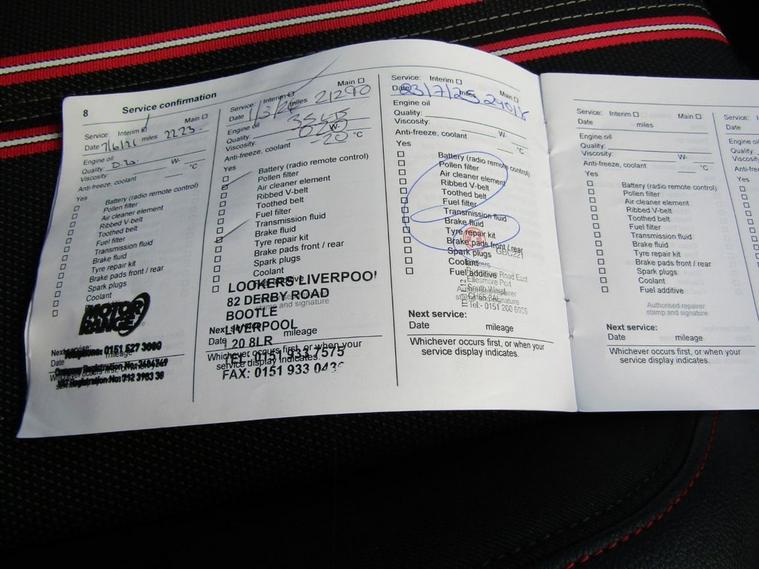 8 Service confirmation
Service: Interim Main
Date 7/6/21 miles 2223
Engine oil
Quality:
Viscosity: W-
Anti-freeze, coolant °C
Yes
Battery (radio remote control)
Pollen filter
Air cleaner element
Ribbed V-belt
Toothed belt
Fuel filter
Transmission fluid
Brake fluid
Tyre repair kit
Brake pads front / rear
Spark plugs
Coolant
MOTOR RANGE
Next service:
Telephone: 0151 527 3000
Service: Interim Main
Date miles 21290
Engine oil
Quality:
Viscosity: W-
Anti-freeze, coolant -20 °C
Yes
Battery (radio remote control)
Pollen filter
Air cleaner element
Ribbed V-belt
Toothed belt
Fuel filter
Transmission fluid
Brake fluid
Tyre repair kit
Brake pads front / rear
Spark plugs
Coolant
LOOKERS LIVERPOOL
82 DERBY ROAD
BOOTLE
LIVERPOOL
L20 8LR
TEL: 0151 933 7575
FAX: 0151 933
Next service:
Date mileage
Whichever occurs first, or when your
service display indicates.
Service: Interim Main
Date 23/7/25 miles
Engine oil
Quality:
Viscosity: W-
Anti-freeze, coolant °C
Yes
Battery (radio remote control)
Pollen filter
Air cleaner element
Ribbed V-belt
Toothed belt
Fuel filter
Transmission fluid
Brake fluid
Tyre repair kit
Brake pads front / rear
Spark plugs
Coolant
Fuel additive
Ellesmere Port
Next service:
Date mileage
Whichever occurs first, or when your
service display indicates.
Service: Interim Main
Date miles
Engine oil
Quality:
Viscosity: W-
Anti-freeze, coolant °C
Yes
Battery (radio remote control)
Pollen filter
Air cleaner element
Ribbed V-belt
Toothed belt
Fuel filter
Transmission fluid
Brake fluid
Tyre repair kit
Brake pads front / rear
Spark plugs
Coolant
Fuel additive
Authorised repairer
stamp and signature
Next service:
Date mileage
Whichever occurs first, or when your
service display indicates.
Service:
Date
Engine oil
Quality:
Viscosity
Anti-free
Yes